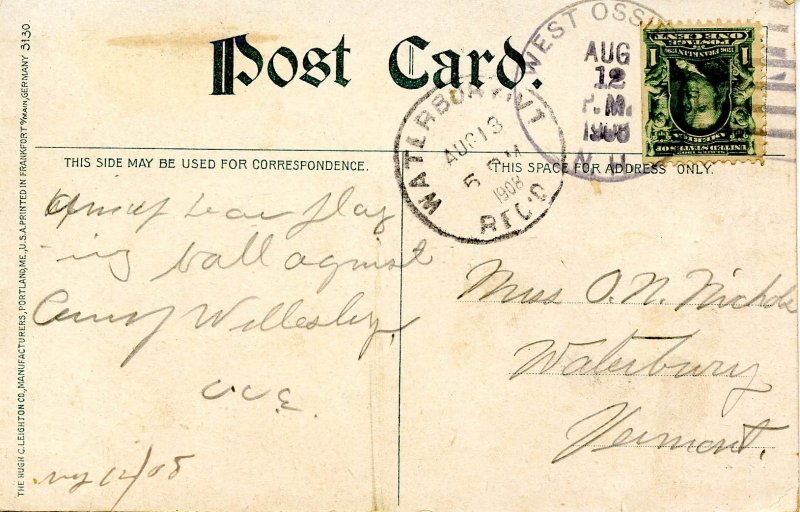 Post Card.
THIS SIDE MAY BE USED FOR CORRESPONDENCE.
THIS SPACE FOR ADDRESS ONLY.
THE HUGH C. LEIGHTON CO., MANUFACTURERS, PORTLAND, ME., U.S.A. PRINTED IN FRANKFORT o/MAIN, GERMANY 3130
WEST OSSI
AUG
12
P.M.
1908
N.H.
WATERBURY, VT
AUG 13
5 PM
1908
REC'D
1
1
ONE CENT
ball against
Camp Wellesley.
12/08
Miss O. N. Nichols
Waterbury
Vermont.